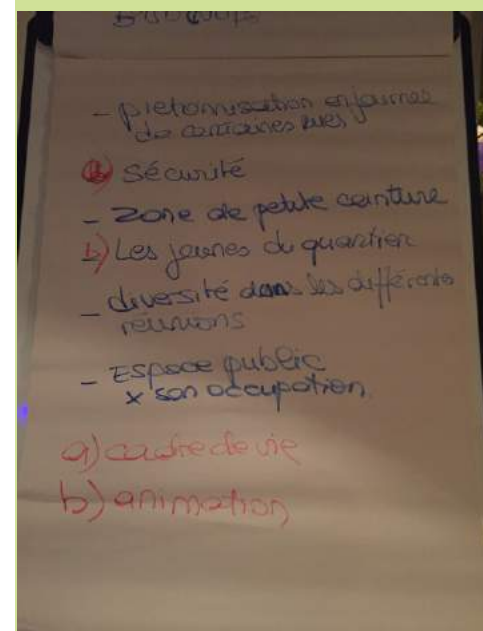 - piétonnisation en journée
de certaines rues
a) Sécurité
- Zone de petite ceinture
b) Les jeunes du quartier
- diversité dans les différentes
réunions
- Espace public
x son occupation
a) cadre de vie
b) animation